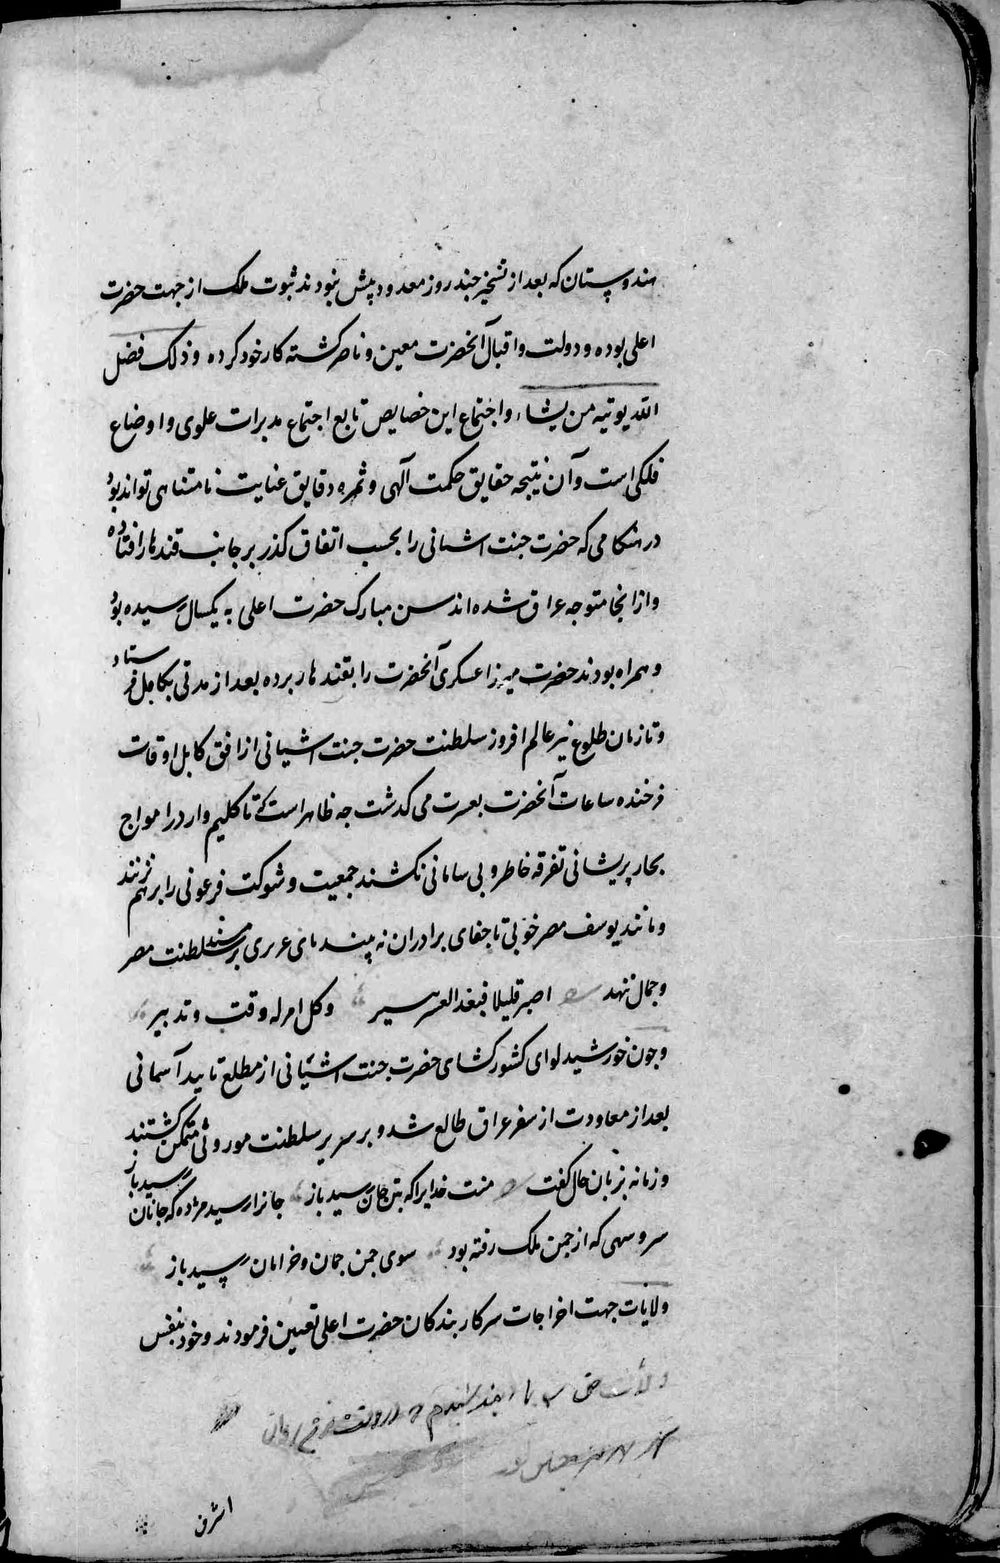 هندوستان که بعد از تسخیر چند روز معدود بیش نبودند ثبوت ملک از جهت حضرت
اعلی بوده و دولت و اقبال آنحضرت معین و ناصر کشته کار خود کرده و ذلک فضل
الله یوتیه من یشاء و اجتماع این خصایص تابع اجتماع مدبرات علوی و اوضاع
فلکی است و آن نتیجه حقایق حکمت آلهی و ثمره دقایق عنایت نامتناهی تواند بود
در هنکامی که حضرت جنت اشیانی را بحسب اتفاق کذر بر جانب قندهار افتاده
و از انجا متوجه عراق شده اند سن مبارک حضرت اعلی به یکسال رسیده بود
و همراه بودند حضرت میرزا عسکری آنحضرت را بقندهار برده بعد از مدتی بکابل فرستاد
و تا زمان طلوع نیر عالم افروز سلطنت حضرت جنت اشیانی از افق کابل اوقات
فرخنده ساعات آنحضرت بعسرت می کذشت جه ظاهر است که تا کلیم وار در امواج
بحار پریشانی تفرقه خاطر و بی سامانی نکشند جمعیت و شوکت فرعونی را برهم نزنند
و مانند یوسف مصر خوبی تا جفای برادران نه بیند پای عزیزی بر مسند سلطنت مصر
و جمال ننهد اصبر قلیلا فبعد العسر یسیر و کل امر له وقت و تدبیر
و جون خورشید لوای کشور کشای حضرت جنت اشیانی از مطلع تایید آسمانی
بعد از معاودت از سفر عراق طالع شد و بر سریر سلطنت موروثی متمکن کشتند
و زمانه بزبان حال کفت منت خدایرا که بتن جان رسید باز جانرا رسید مژده که جانان رسید باز
سرو سهی که از جمن ملک رفته بود سوی جمن جمان و خرامان رسید باز
ولایات جهت اخراجات سرکار بندکان حضرت اعلی تعیین فرمودند و خود بنفس
اشرف